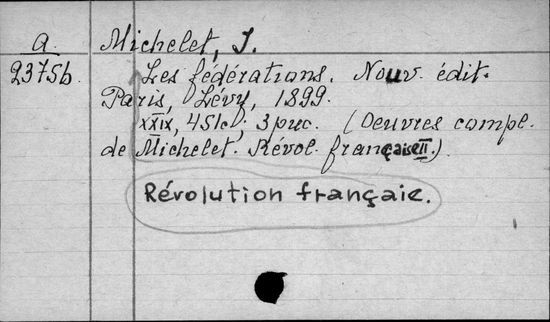 a Michelet, J.
2375b. Les fédérations. Nouv. édit.
Paris, Lévy, 1899.
XXIX, 451 c., 3 рис. (Oeuvres compl.
de Michelet. Révol. française II).
Révolution françaie.